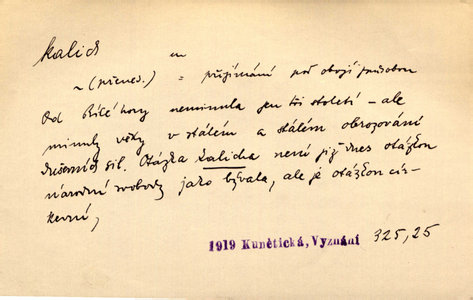 kalich m
~ (přenes.) = přijímání pod obojí způsobou
Od Bílé hory neminula jen tři století – ale
minuly věky v stálém a stálém obrozování
duševních sil. Otázka kalicha není již dnes otázkou
národní svobody jako bývala, ale je otázkou cír-
kevní,
1919 Kunětická, Vyznání 325,25